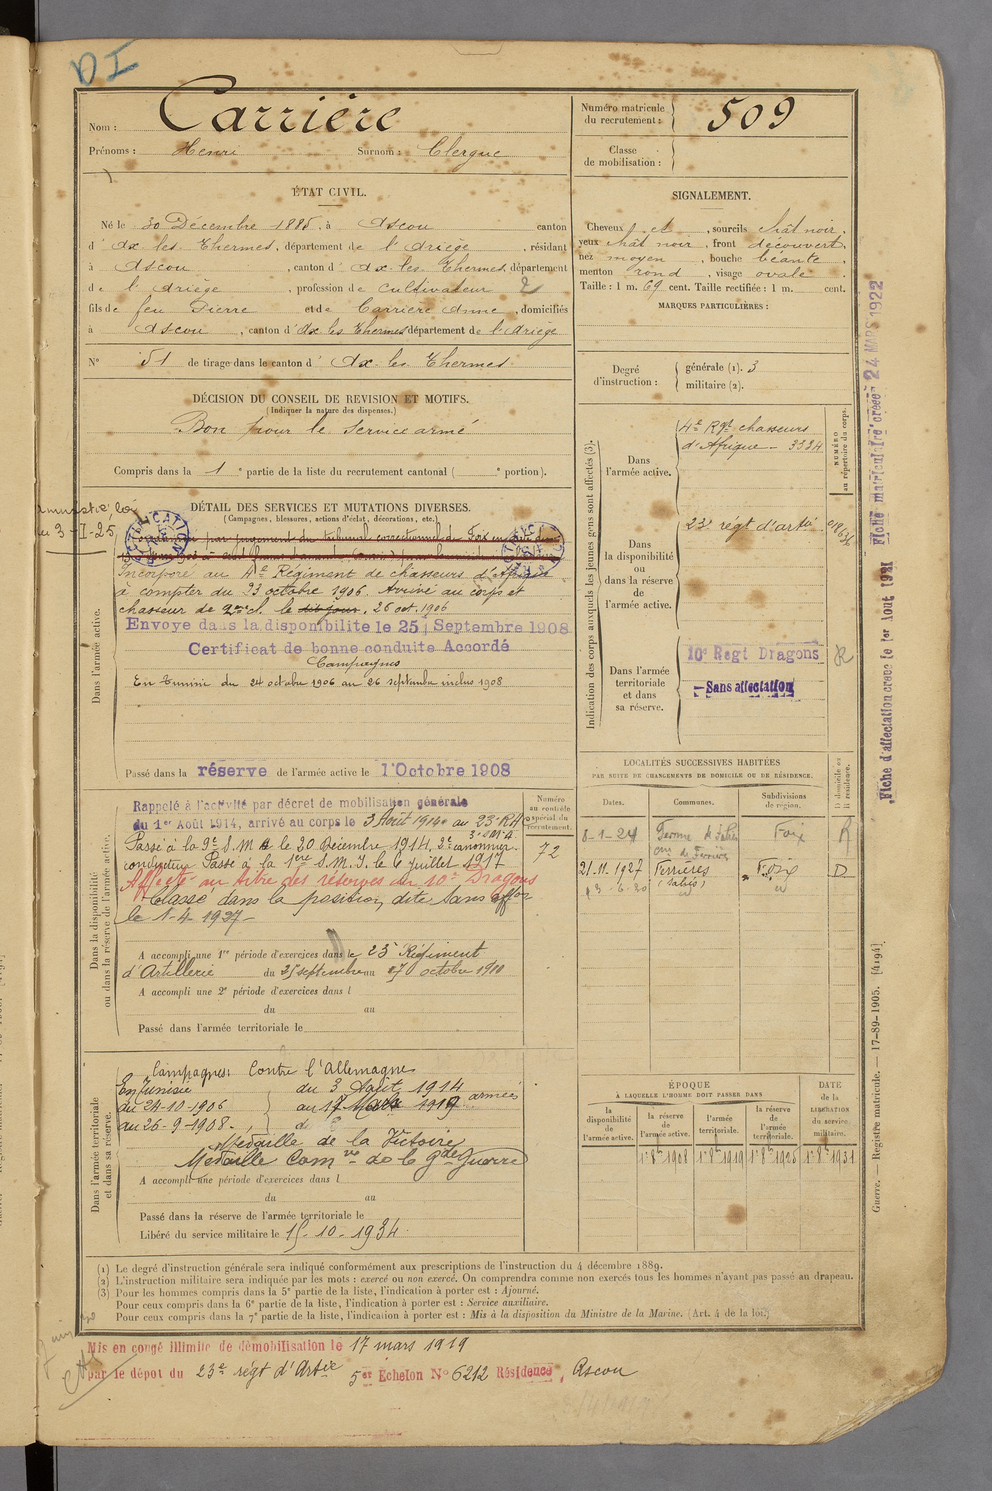 DI
Nom : Carrière
Prénoms : Henri Surnom : Clergue
Numéro matricule du recrutement : 509
Classe de mobilisation :
ÉTAT CIVIL.
Né le 30 Décembre 1885, à Ascou canton
d' Ax les Thermes, département de l'Ariège, résidant
à Ascou, canton d' Ax les Thermes, département
de l'Ariège, profession de Cultivateur 2
fils de feu Pierre et de Carrière Anne, domiciliés
à Ascou, canton d' Ax les Thermes département de l'Ariège
N° 51 de tirage dans le canton d' Ax les Thermes.
SIGNALEMENT.
Cheveux et, sourcils chât noir,
yeux chât noir, front découvert,
nez moyen, bouche béante,
menton rond, visage ovale.
Taille : 1 m. 69 cent. Taille rectifiée : 1 m. cent.
MARQUES PARTICULIÈRES :
Degré d'instruction : générale (1). 3
militaire (2).
DÉCISION DU CONSEIL DE REVISION ET MOTIFS.
(Indiquer la nature des dispenses.)
Bon pour le Service armé
Compris dans la 1e partie de la liste du recrutement cantonal ( e portion).
DÉTAIL DES SERVICES ET MUTATIONS DIVERSES.
(Campagnes, blessures, actions d'éclat, décorations, etc.)
3-I-25
par jugement du tribunal correctionnel de Foix
Dans l'armée active.
Incorporé au 4e Régiment de chasseurs d'Afrique
à compter du 23 octobre 1906. Arrivé au corps et
chasseur de 2me cl. le dit jour. 26 oct. 1906
Envoyé dans la disponibilite le 25 Septembre 1908
Certificat de bonne conduite Accordé
Campagnes
En Tunisie du 24 octobre 1906 au 26 septembre inclus 1908
Passé dans la réserve de l'armée active le 1 Octobre 1908
Dans la disponibilité ou dans la réserve de l'armée active.
Rappelé à l'activité par décret de mobilisation générale
du 1er Août 1914, arrivé au corps le 3 Août 1914 au 23e RA
Passé à la 9e S.M.A le 20 Décembre 1914, 2e canonnier
conducteur Passé à la 1ère S.M.I. le 6 juillet 1917
Affecté au titre des réserves au 10e Dragons
Classé dans la position dite Sans affon
le 1-4-1927
Numéro au contrôle spécial du recrutement.
72
A accompli une 1re période d'exercices dans le 23e Régiment
d'Artillerie du 25 septembre au 17 octobre 1910
A accompli une 2e période d'exercices dans l
du au
Passé dans l'armée territoriale le
Dans l'armée territoriale et dans sa réserve.
Campagnes : Contre l'Allemagne
En Tunisie du 3 Août 1914
du 24-10-1906 au 17 Mars 1919 armées
au 26-9-1908.
Médaille de la Victoire
Médaille Comve de la Gde Guerre
A accompli une période d'exercices dans l
du au
Passé dans la réserve de l'armée territoriale le
Libéré du service militaire le 15-10-1934.
Indication des corps auxquels les jeunes gens sont affectés (3).
Dans l'armée active.
4e Rgt chasseurs
d'Afrique - 3324
NUMÉRO au répertoire du corps.
Dans la disponibilité ou dans la réserve de l'armée active.
23e régt d'artie
Dans l'armée territoriale et dans sa réserve.
10e Regt Dragons R
Sans affectation
LOCALITÉS SUCCESSIVES HABITÉES
PAR SUITE DE CHANGEMENTS DE DOMICILE OU DE RÉSIDENCE.
Dates. Communes. Subdivisions de région. D domicile ou R résidence.
8-1-24 Ferme Foix R
21.11.1927 Ferrières Foix D
ÉPOQUE
À LAQUELLE L'HOMME DOIT PASSER DANS
DATE de la LIBÉRATION du service militaire.
la disponibilité de l'armée active. la réserve de l'armée active. l'armée territoriale. la réserve de l'armée territoriale.
1r 8bre 1908 1r 8bre 1919 1r 8bre 1925 1r 8bre 1931
(1) Le degré d'instruction générale sera indiqué conformément aux prescriptions de l'instruction du 4 décembre 1889.
(2) L'instruction militaire sera indiquée par les mots : exercé ou non exercé. On comprendra comme non exercés tous les hommes n'ayant pas passé an drapeau.
(3) Pour les hommes compris dans la 5e partie de la liste, l'indication à porter est : Ajourné.
Pour ceux compris dans la 6e partie de la liste, l'indication à porter est : Service auxiliaire.
Pour ceux compris dans la 7e partie de la liste, l'indication à porter est : Mis à la disposition du Ministre de la Marine. (Art. 4 de la loi.)
Mis en congé illimité de démobilisation le 17 mars 1919
par le dépot du 23e régt d'Artie 5er Echelon N° 6212 Résidence, Ascou
Fiche matriculaire créée 24 MARS 1922
Fiche d'affectation créée le 1er Aout 1921
Guerre. — Registre matricule. — 17-89-1905. [4194]